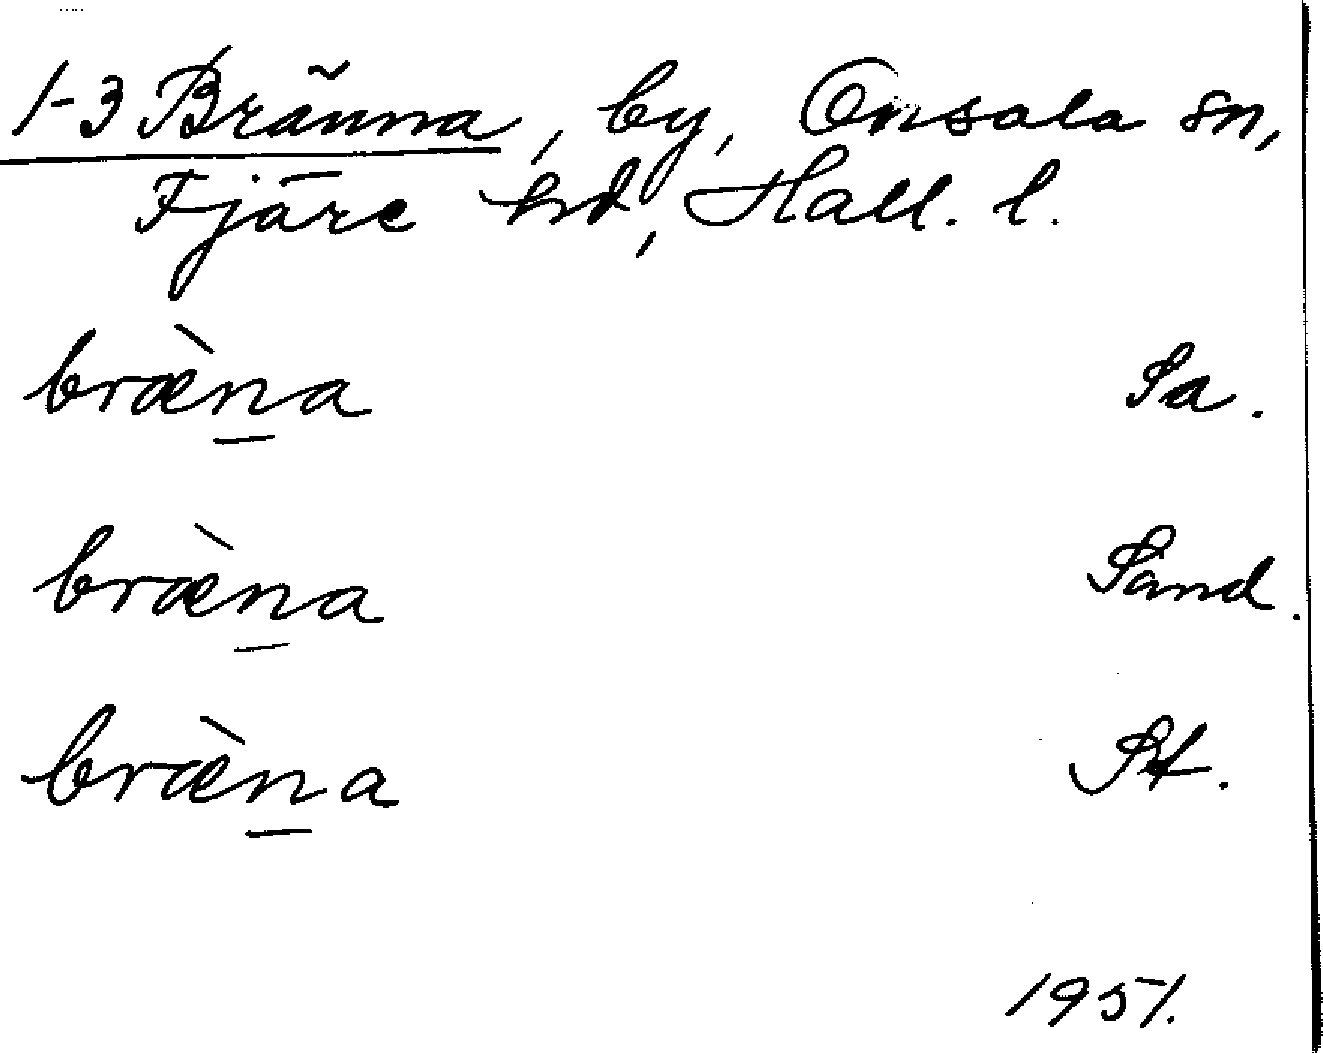 1-3 Bränna, by, Onsala sn,
Fjäre hd, Hall. l.
bræ̀n̲a Sa.
bræ̀n̲a Sand.
bræ̀n̲a St.
1951.